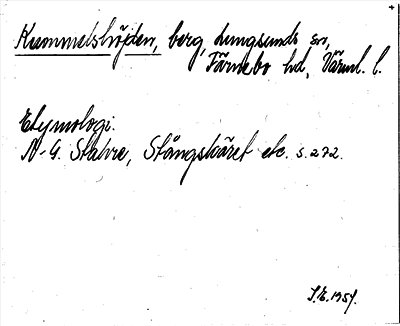 Kummelshöjden, berg, Lungsunds sn,
Färnebo hd, Värml. l.
Etymologi.
N-G. Stahre, Stångskäret etc. s. 272.
S.E. 1954.